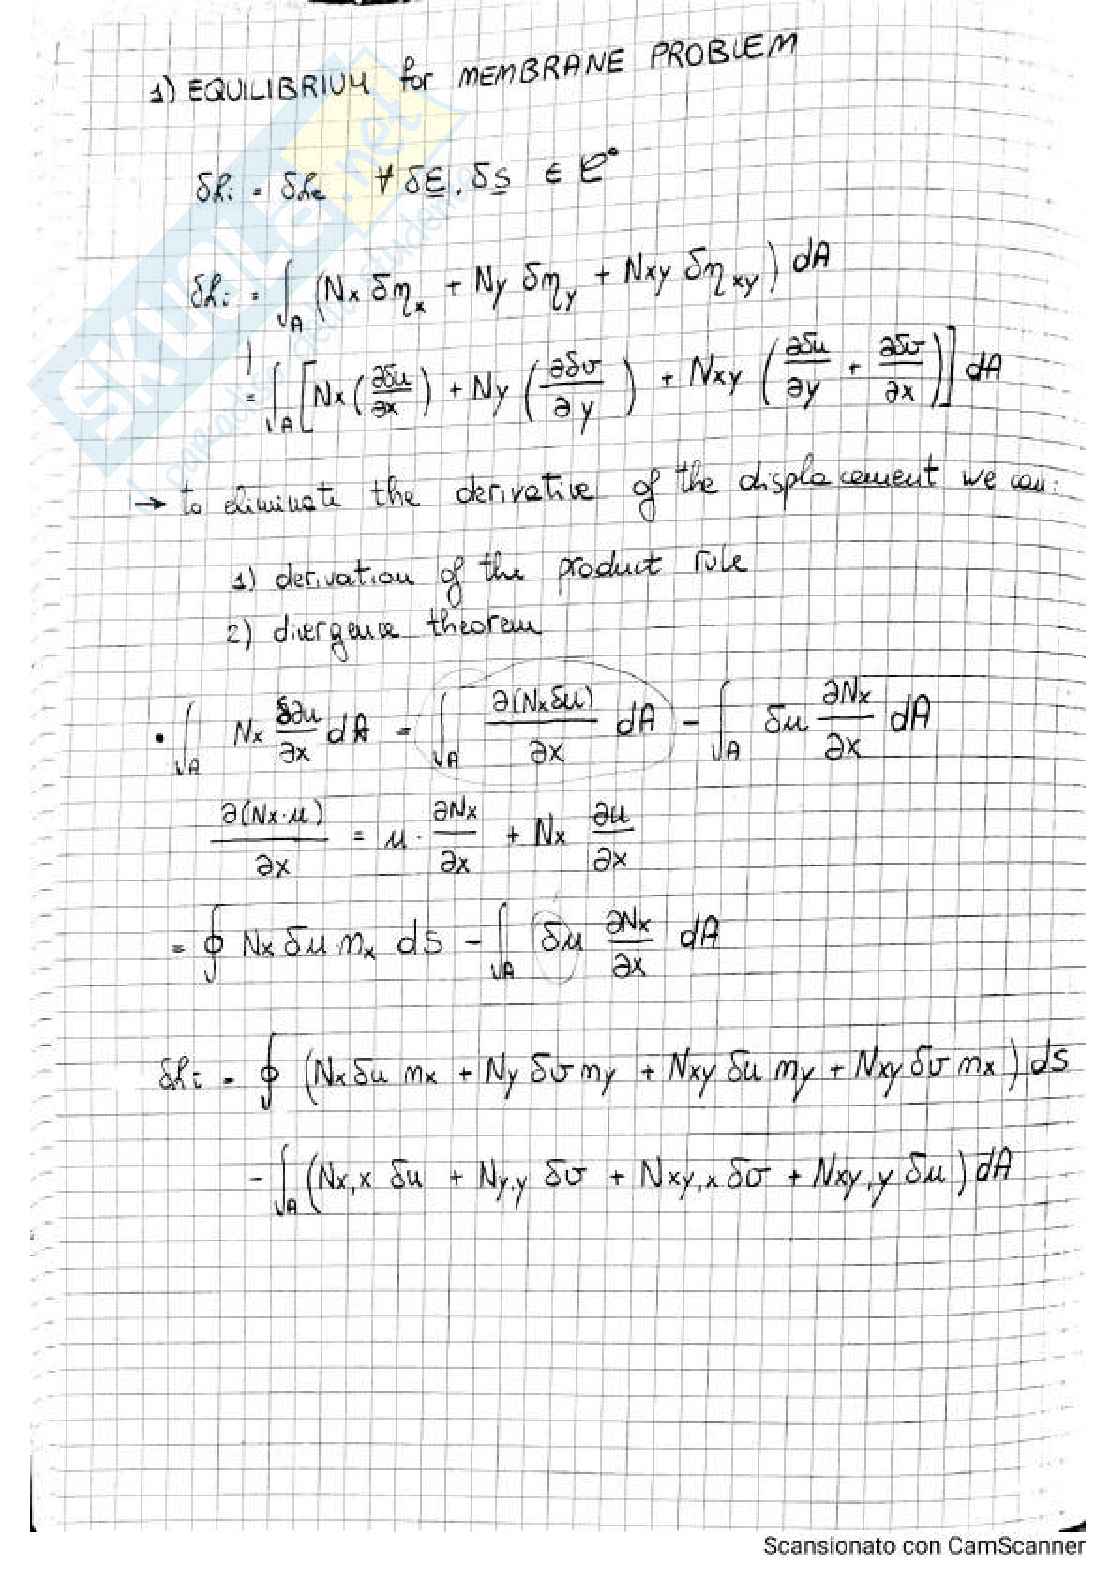 1) EQUILIBRIUM for MEMBRANE PROBLEM
δLi = δLe ∀ δE, δs ∈ C°
δLi = ∫_A (Nx δηx + Ny δηy + Nxy δηxy) dA
= ∫_A [Nx (∂δu/∂x) + Ny (∂δv/∂y) + Nxy (∂δu/∂y + ∂δv/∂x)] dA
→ to eliminate the derivative of the displacement we can:
1) derivation of the product rule
2) divergence theorem
• ∫_A Nx δ∂u/∂x dA = ∫_A ∂(Nxδu)/∂x dA - ∫_A δu ∂Nx/∂x dA
∂(Nx·u)/∂x = u · ∂Nx/∂x + Nx ∂u/∂x
= ∮ Nx δu mx ds - ∫_A δu ∂Nx/∂x dA
δLi = ∮ (Nx δu mx + Ny δv my + Nxy δu my + Nxy δv mx) ds
- ∫_A (Nx,x δu + Ny,y δv + Nxy,x δv + Nxy,y δu) dA
SKUOLA.net
Scansionato con CamScanner